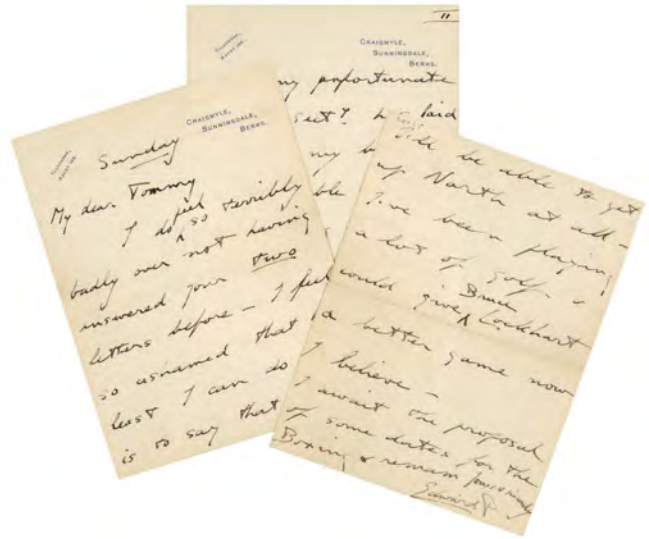 CRAIGMYLE,
SUNNINGDALE,
BERKS.
Sunday
My dear Tommy
I do feel so terribly
badly over not having
answered your two
letters before – I feel
so ashamed that
least I can do
is to say that
II
CRAIGMYLE,
SUNNINGDALE,
BERKS.
my unfortunate
laid
my
I'll be able to get
up North at all –
I've been playing
a lot of golf &
could give Bruce Lockhart
a better game now
I believe –
I await the proposal
of some dates for the
Boxing & remain
Edward P